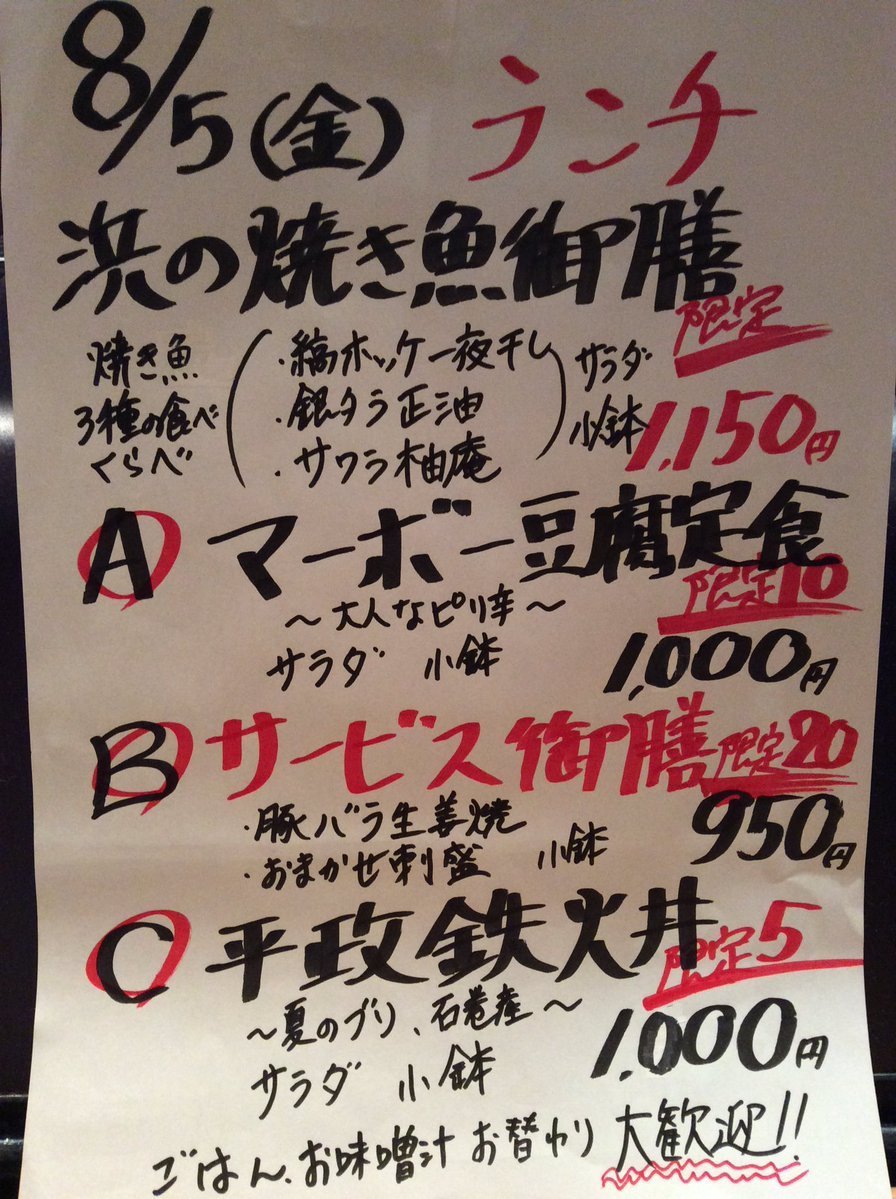 8/5(金) ランチ
浜の焼き魚御膳
限定
焼き魚
3種の食べ
くらべ
・縞ホッケ一夜干し
・銀タラ正油
・サワラ柚庵
サラダ
小鉢
1,150円
A マーボー豆腐定食
限定10
〜大人なピリ辛〜
サラダ 小鉢
1,000円
B サービス御膳 限定20
・豚バラ生姜焼
・おまかせ刺盛 小鉢
950円
C 平政鉄火丼
限定5
〜夏のブリ、石巻産〜
サラダ 小鉢
1,000円
ごはん、お味噌汁 お替わり 大歓迎!!